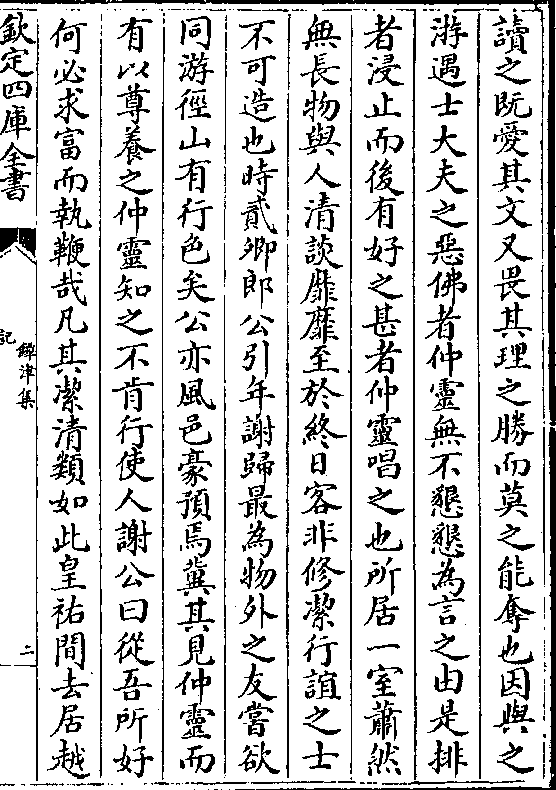 讀之既愛其文又畏其理之勝而莫之能奪也因與之
游遇士大夫之惡佛者仲靈無不懇懇為言之由是排
者浸止而後有好之甚者仲靈唱之也所居一室蕭然
無長物與人清談靡靡至於終日客非修潔行誼之士
不可造也時貳卿郎公引年謝歸最為物外之友嘗欲
同游徑山有行色矣公亦風邑豪預焉冀其見仲靈而
有以尊養之仲靈知之不肯行使人謝公曰從吾所好
何必求富而執鞭哉凡其潔清類如此皇祐間去居越
欽定四庫全書
鐔津集
記
二